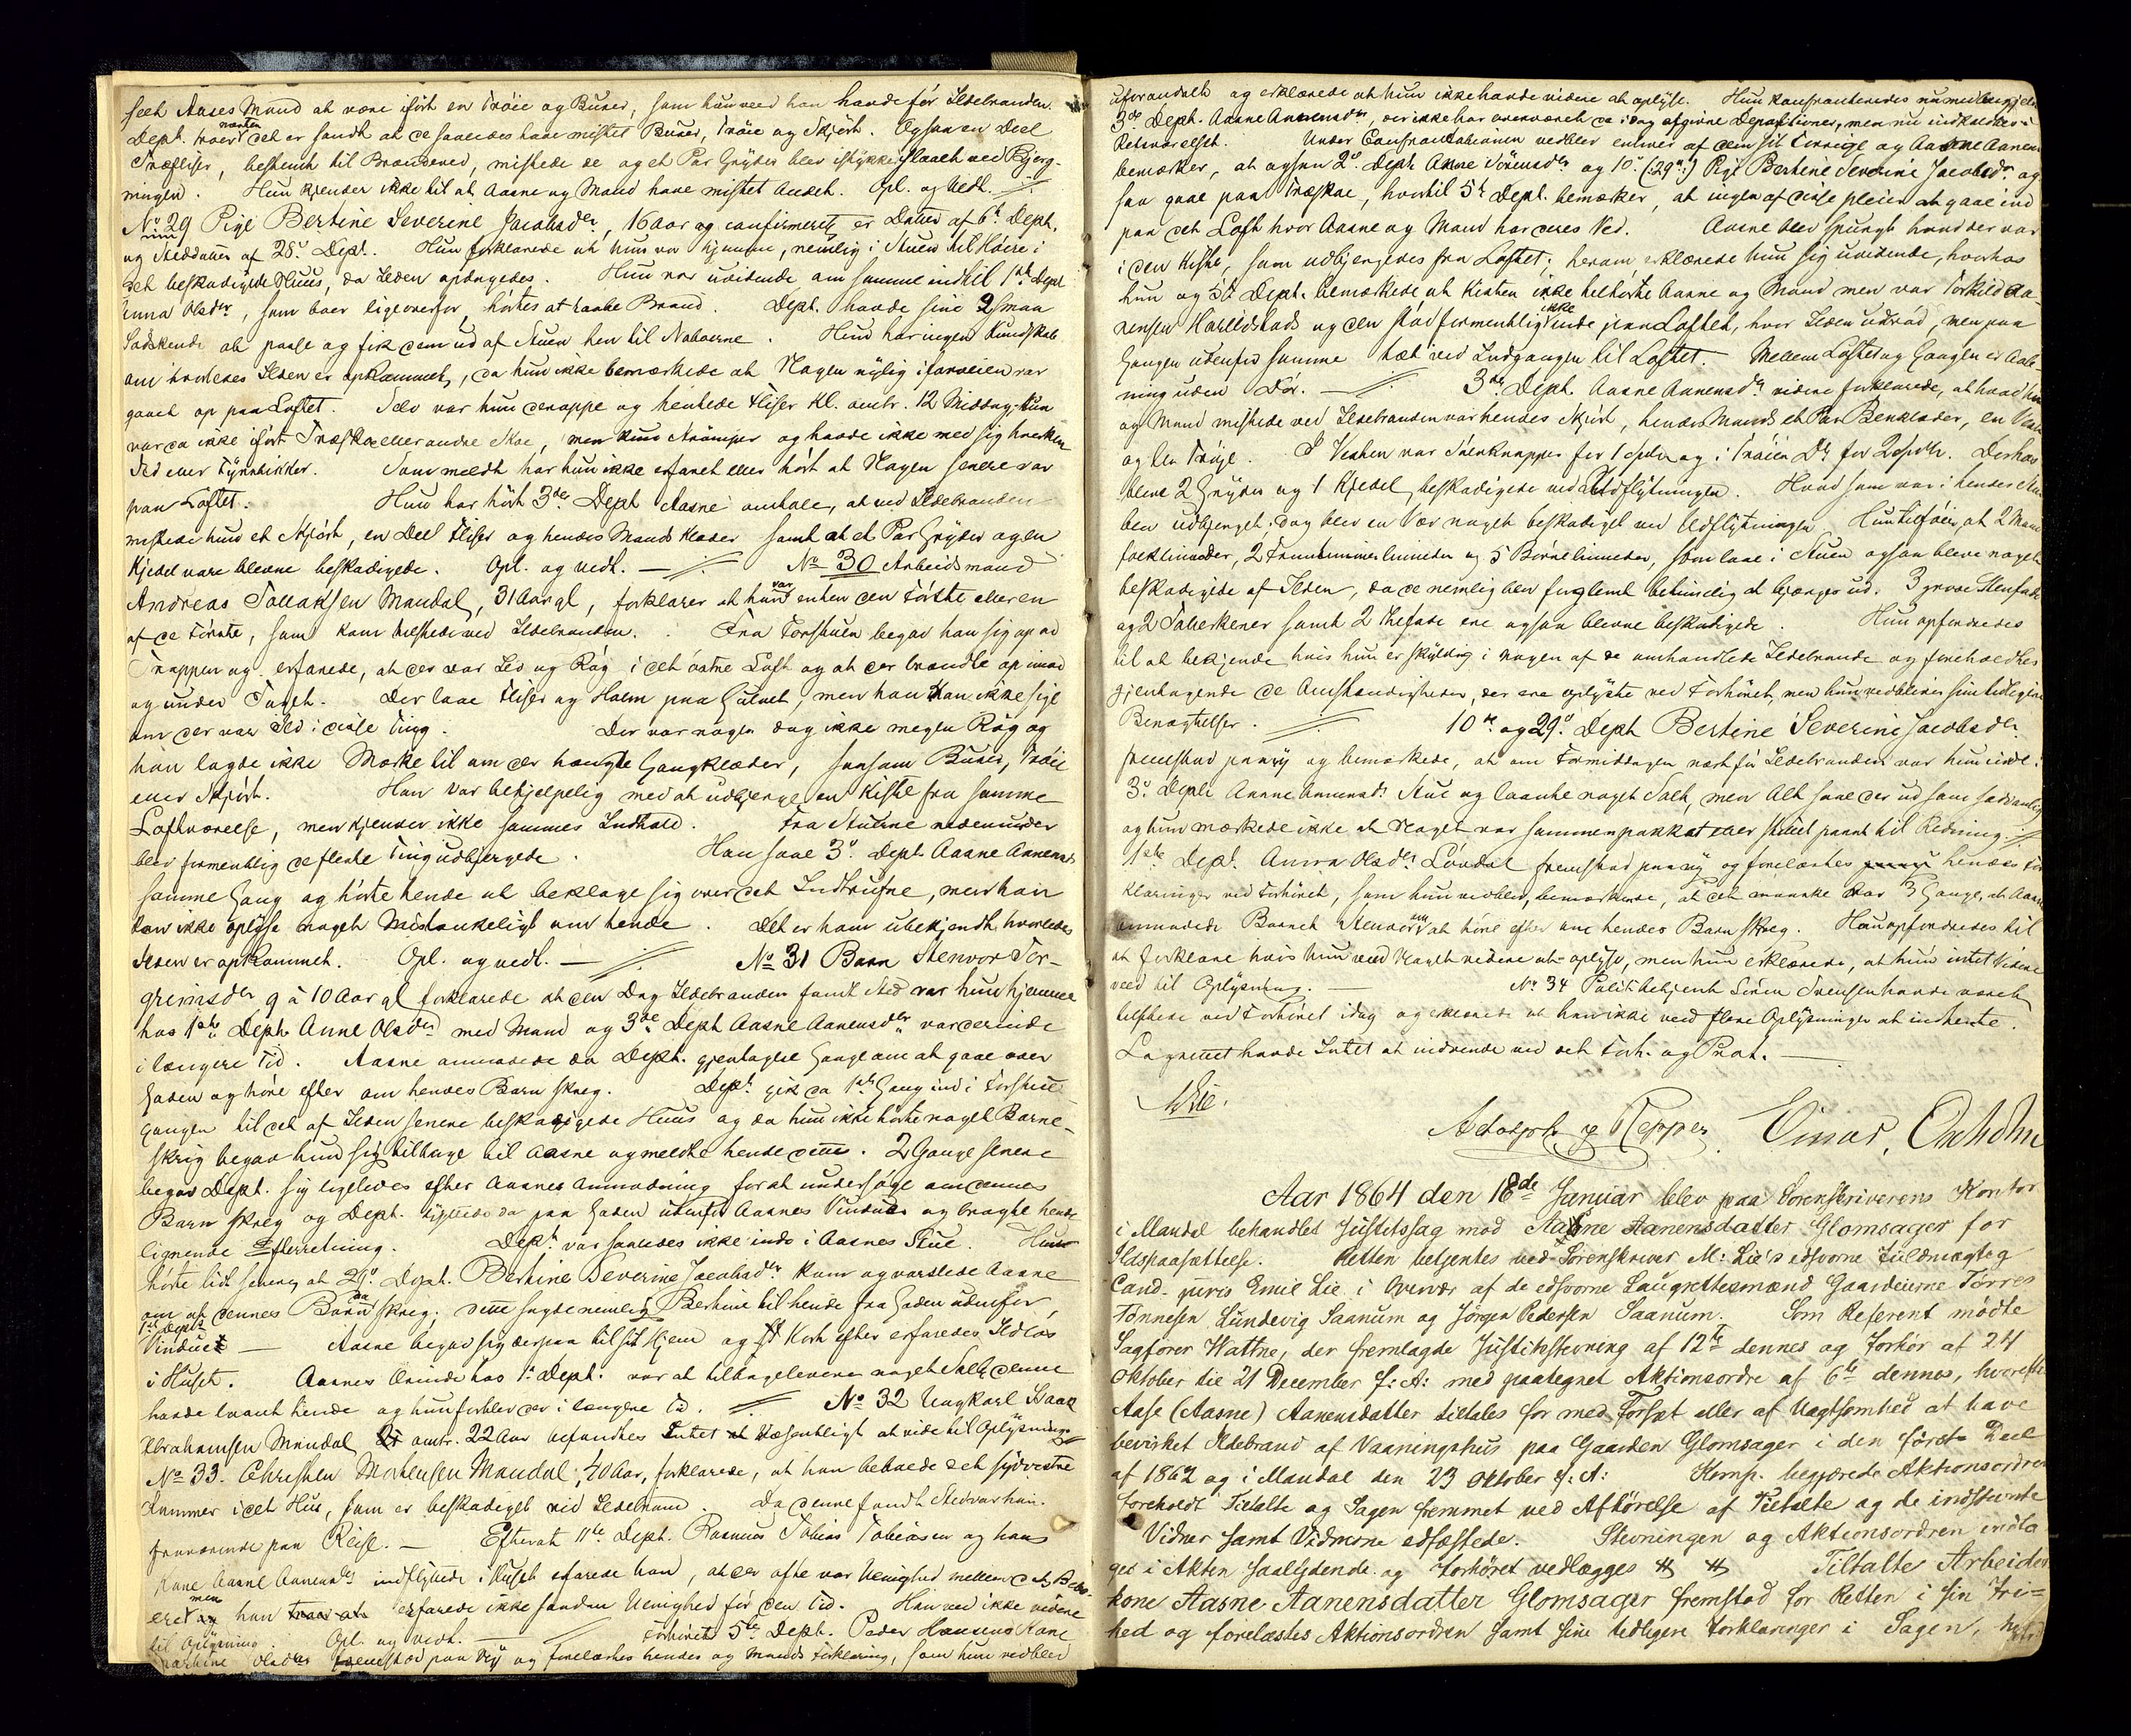 seet Aases Mand at være iført en Trøie og Buxer, som hun veed han havde før Ildebranden.
Dept. troer næsten det er sandt at de saaledes have mistet Buxer, Trøie og Skjørt. Ogsaa en Deel
Træfliser, bestemt til Brændeved, mistede de og et Par Gryder blev istykkerslaaet ved Bjerg-
ningen. Hun kjender ikke til at Aasne og Mand have mistet Andet. Opl. og Vedt.
No 29 Pige Bertine Severine Jacobsdr, 16 Aar og confirmeret er Datter af 6te Dept.
og Steddatter af 28de Dept. Hun forklarede at hun var hjemme, nemlig i Stuen til Høire i
det beskadigede Huus, da Ilden opdagedes. Hun var uvidende om samme indtil 1ste Dept
Anna Olsdr, som boer ligeoverfor, hørtes at raabe Brand. Dept. havde sine 2 smaa
Sødskende at passe og fik dem ud af Stuen hen til Naboerne. Hun har ingen Kundskab
om hvorledes Ilden er opkommet, da hun ikke bemærkede at Nogen nylig i forveien var
gaaet op paa Loftet. Selv var hun deroppe og hentede Fliser Kl. omtr. 12 Middag. Hun
var da ikke iført Træsko eller andre Skoe, men kuns Strømper og havde ikke med sig hverken
Ild eller Fyrstikker. Som meldt har hun ikke erfaret eller hørt at Nogen senere var
paa Loftet. Hun har hørt 3die Dept Aasne omtale, at ved Ildebranden
mistede hun et Skjørt, en Deel Fliser og hendes Mands Klæder samt at et Par Gryder og en
Kjedel vare blevne beskadigede. Opl. og vedt. — No 30 Arbeidsmand
Andreas Tallaksen Mandal, 31 Aar gl, forklarer at han var enten den Første eller en
af de Første, som kom tilstede ved Ildebranden. Fra Forstuen begav han sig op ad
Trappen og erfarede, at der var Ild og Røg i det østre Loft og at der brændte op imod
og under Taget. Der laae Fliser og Halm paa Gulvet, men han kan ikke sige
om der var Ild i disse Ting. Der var nogen dog ikke megen Røg og
han lagde ikke Mærke til om der hængte Gangklæder, saasom Buxer, Trøie
eller Skjørt. Han var behjelpelig med at udbjerge en Kiste fra samme
Loftværelse, men kjender ikke sammes Indhold. Fra Stuerne nedenunder
blev formentlig de fleste Ting udbjergede. Han saae 3de Dept Aasne Aanensdr
samme Gang og hørte hende at beklage sig over det Indtrufne, men han
kan ikke oplyse noget Mistænkeligt om hende. Det er ham ubekjendt, hvorledes
Ilden er opkommet. Opl. og vedt. — No 31 Barn Stenvor Tor-
grimsdr 9 à 10 Aar gl forklarede at den Dag Ildebranden fandt Sted var hun hjemme
hos 1ste Dept. Anne Olsdr med Mand og 3die Dept Aasne Aanensdr var derinde
i længere Tid. Aasne anmodede da Dept. gjentagne Gange om at gaae over
Gaden og høre efter om hendes Barn skreg. Dept. gik da 1ste Gang ind i Forstue-
gangen til det af Ilden senere beskadigede Huus og da hun ikke hørte noget Barne-
skrig begav hun sig tilbage til Aasne og meldte hende dette. 2 Gange senere
begav Dept. sig ligeledes efter Aasnes Anmodning for at undersøge om dennes
Barn skreg og Dept. lyttede da paa Gaden udenfor Aasnes Vinduer og bragte hende
lignende Efterretning. Dept. var saaledes ikke inde i Aasnes Stue. Hun
hørte lidt senere, at 29de Dept. Bertine Severine Jacobsdr kom og varslede Aasne
om at dennes Barn da skreg; dette sagde nemlig Bertine til hende fra Gaden udenfor,
1ste Depts
Vinduet — Aasne begav sig derpaa til sit Hjem og Kort efter erfaredes Ildløs
i Huset. Aasnes Ærinde hos 1ste Dept. var at tilbagelevere noget Salt, denne
havde laant hende og hun forblev der i længere Tid. — No 32 Ungkarl Isaac
Abrahamsen Mandal, omtr. 22 Aar befandtes Intet Væsentligt at vide til Oplysning.
No 33. Christen Mortensen Mandal, 40 Aar, forklarede, at han beboede det sydvestre
Kammer i det Hus, som er beskadiget ved Ildebrand. Da denne fandt Sted var han
fraværende paa Reise. — Efterat 11te Dept. Rasmus Tobias Tobiassen og hans
Kone Aasne Aanensdr indflyttede i Huset erfarede han, at der ofte var Uenighed mellem
men han erfarede ikke saadan Uenighed før den Tid. Han ved ikke videre
til Oplysning. Opl. og vedt. — Forhørets 5te Dept. Peder Hansens Kone
Olsdr fremstod paa Ny og forelæstes hendes og Mands Forklaring, som hun vedblev
uforandret og erklærede at hun ikke havde videre at oplyse. Hun konfronteredes nu med
3die Dept. Aasne Aanensdr, der ikke har overværet de i Dag afgivne Depositioner, men nu indkaldes i
Retsværelset. Under Confrontationen vedblev enhver af dem sit Tidrige og Aasne Aanens
bemærker, at ogsaa 2de Dept. Anne Sørensdr og 10de (:29de:) Pige Bertine Severine Jacobsdr og
saa gaae paa Træskoe, hvortil 5te Dept. bemærker, at ingen af disse pleier at gaae ind
paa det Loft hvor Aasne og Mand har deres Ved. Aasne blev spurgt hvad der var
i den Kiste, som udbjergedes fra Loftet; herom erklærede hun sig uvidende, hvorhos
hun og 5te Dept. bemærkede at Kisten ikke tilhørte Aasne og Mand men var Torkild Aa-
nensen Harlidstads og den stod formentlig ikke inde paa Loftet, hvor Ilden udbrød, men paa
Gangen udenfor samme tæt ved Indgangen til Loftet. — Mellem Loftet og Gangen er Aab-
ning uden Dør. — 3die Dept. Aasne Aanensdr videre forklarede, at hvad hun
og Mand mistede ved Ildebranden var hendes Skjørt, hendes Mands et Par Benklæder, en Vest
og en Trøje. I Vesten var Sølvknapper for 1 Spdlr og i Trøien Do for 2 Spdlr. Derhos
bleve 2 Gryder og 1 Kjedel beskadigede ved Udflytningen. Hvad som var i hendes Stue
blev udbjerget; dog blev en Vær noget beskadiget ved Udflytningen. Hun tilføier, at 2 Mand-
folklinneder, 2 Fruentimmerlinneder og 5 Børnelinneder, som laae i Stuen ogsaa bleve noget
beskadigede af Ilden, da de nemlig blev forglemt betimelig at bjerges ud. 3 grove Steenfade
og 2 Tallerkener samt 2 Thefade ere ogsaa blevne beskadigede. Hun opfordredes
til at bekjende hvis hun er skyldig i nogen af de omhandlede Ildebrande og foreholdtes
gjentagende de Omstændigheder, der ere oplyste ved Forhøret, men hun vedbliver sin tidligere
Benægtelser. — 10de og 29de Dept Bertine Severine Jacobsdr
fremstod paany og bemærkede, at om Formiddagen næst før Ildebranden var hun inde i
3de Depts Aasne Aanensdrs Stue og laante noget Salt, men Alt saae der ud som sædvanlig
og hun mærkede ikke at Noget var sammenpakket eller stillet paant til Redning.
1ste Dept. Anna Olsdr Løvdal fremstod paany og forelæstes hendes For-
klaringer ved Forhøret, som hun vedblev, bemærkende, at det maaske var 3 Gange, at Aasne
anmodede Barnet Stenvor om at høre efter om hendes Barn skreg. Hun opfordredes til
at forklare hvis hun ved Noget videre at oplyse, men hun erklærede, at hun intet Videre
veed til Oplysning. — No 34 Politibetjent Sören Svensen havde været
tilstede ved Forhöret idag og erklærede at han ikke veed flere Oplysninger at indhente.
Lagrettet havde Intet at indvende ved det Forh. og Prot. —
Lie.
Adolph Repper. Einar, Onholm
Aar 1864 den 18de Januar blev paa Sorenskriverens Kontor
i Mandal behandlet Justitssag mod Aasne Aanensdatter Glomsager for
Ildspaasættelse. Retten betjentes ved Sorenskriver M: Lie's edsvorne Fuldmægtig
Cand. juris Emil Lie i Overvær af de edsvorne Laugrettesmænd Gaardeierne Tørres
Tønnesen Lundevig Saanum og Jørgen Pedersen Saanum. Som Referent mødte
Sagfører Wattne, der fremlagde Justitsstevning af 12te dennes og Forhør af 24
Oktober til 21 December f: A: med paategnet Aktionsordre af 6te dennes, hvorefter
Aase (Aasne) Aanensdatter tiltales for med Forsæt eller af Uagtsomhed at have
bevirket Ildebrand af Vaaningshus paa Gaarden Glomsager i den første Deel
af 1862 og i Mandal den 23 Oktober f: A: Komp. begjærede Aktionsordren
foreholdt Tiltalte og Sagen fremmet ved Afhørelse af Tiltalte og de indstevnte
Vidner samt Vidnerne edfæstede. Stevningen og Aktionsordren indta-
ges i Akten saalydende og Forhøret vedlægges # # Tiltalte Arbeider
kone Aasne Aanensdatter Glomsager fremstod for Retten i sin Fri-
hed og forelæstes Aktionsordren samt sine tidligere Forklaringer i Sagen,